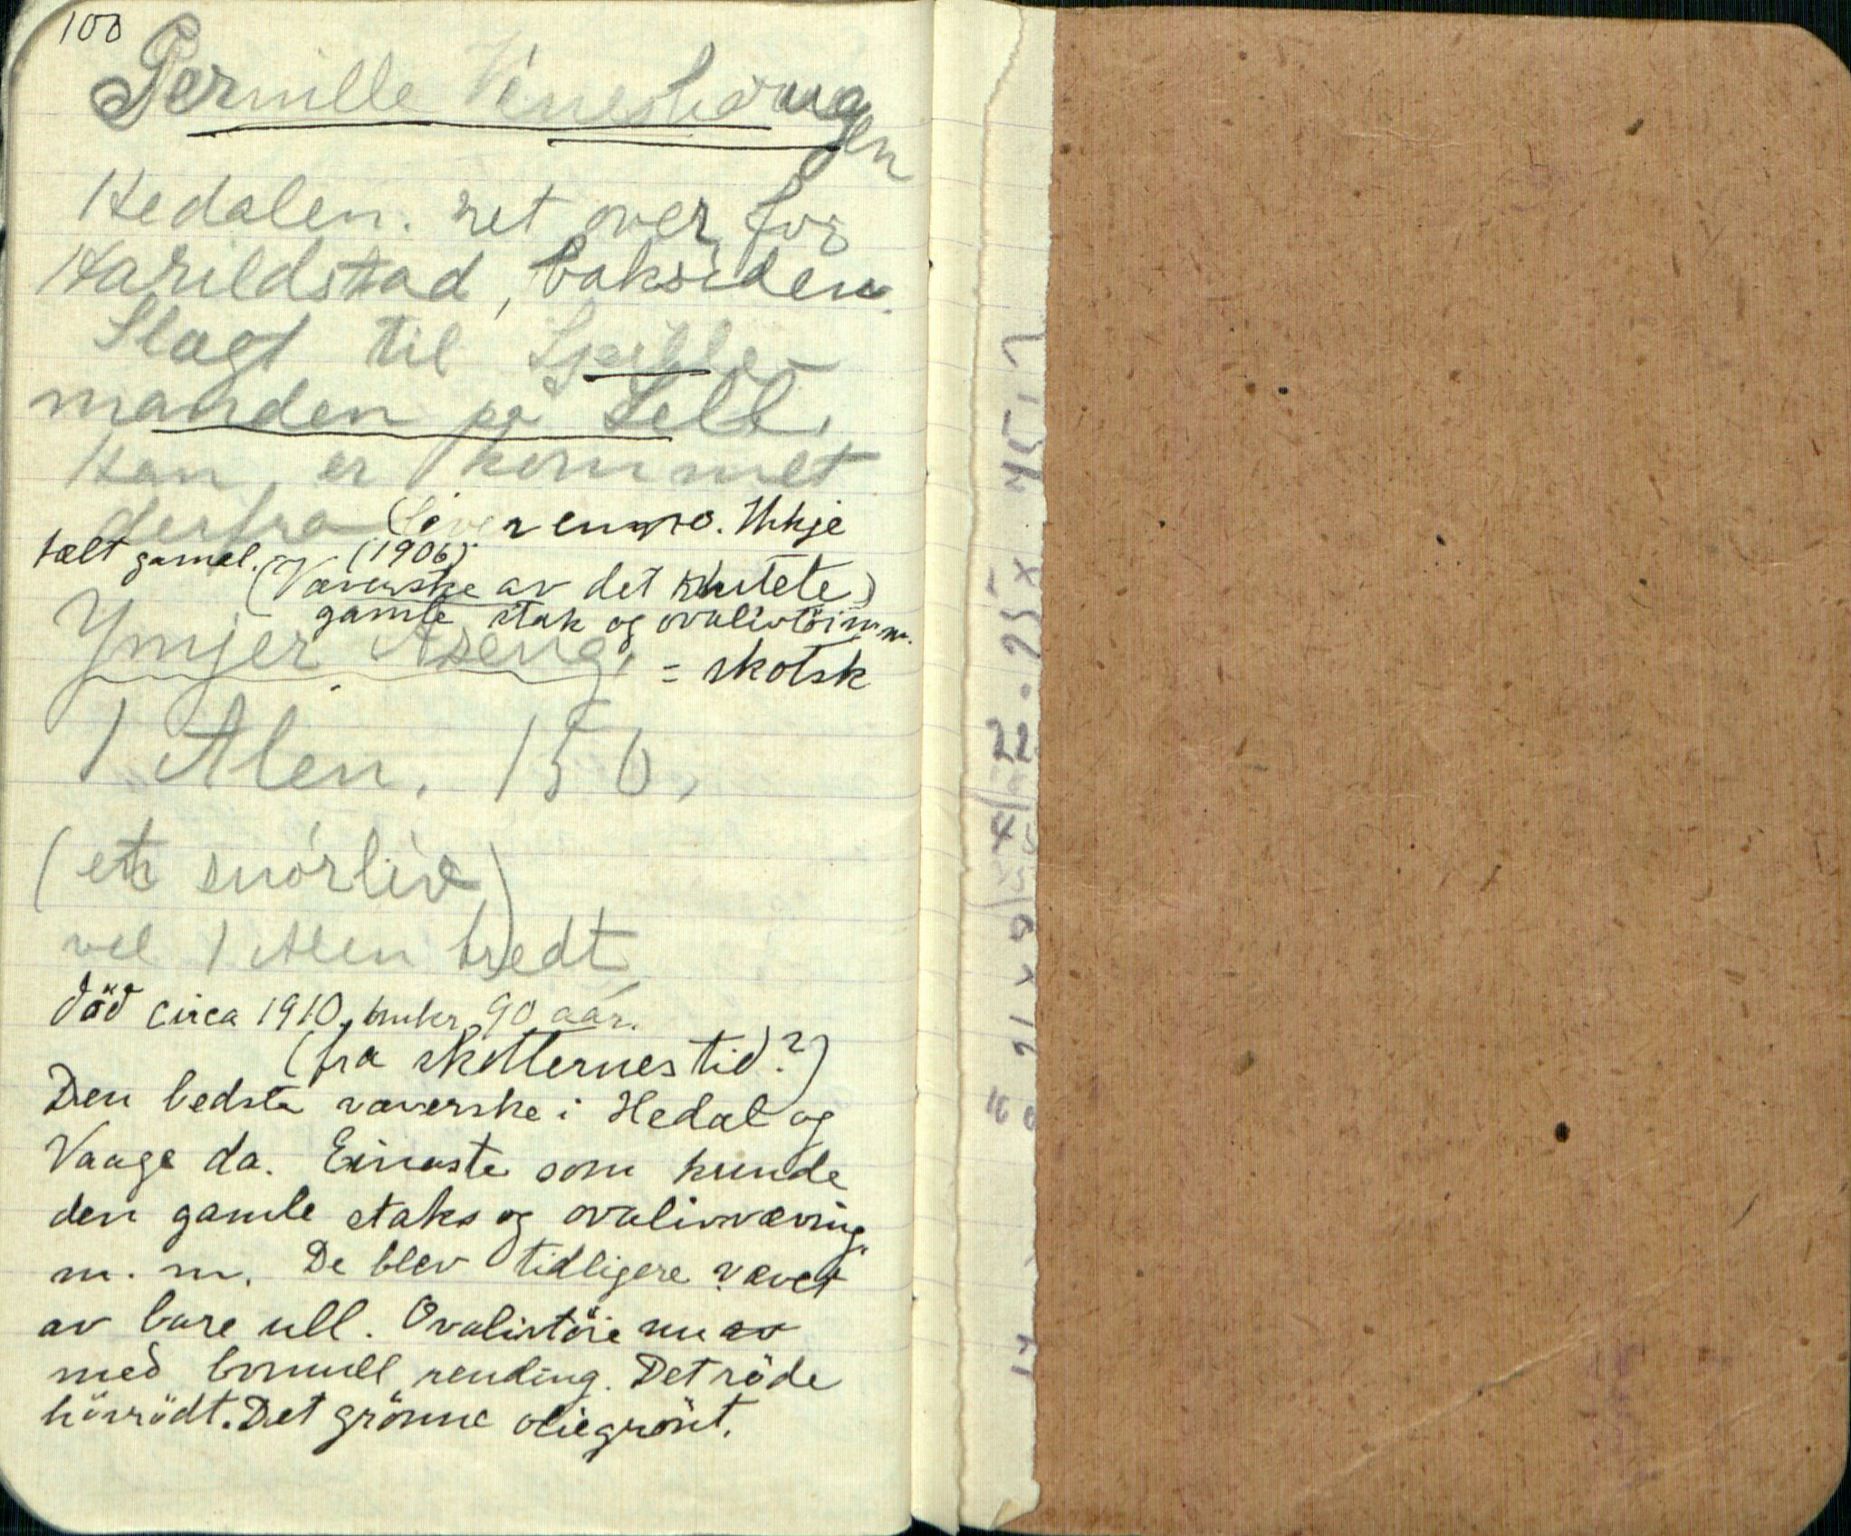 100
Pernille
Hedalen. ret over for
Harildstad, baksiden.
Slagt til Spille-
manden på Sell.
Han er kommet
derfra Ikkje
tælt gamal. (1906)
(Væverske av det rutete)
gamle stak og ovalivtöi m. m.
Ymjer Aseng, = skotsk
1 Alen. 150,
(et snörliv)
vel 1 Alen bredt
död circa 1910, 90 aar.
(fra skotternes tid?)
Den bedste væverske i Hedal og
Vaage da. Einaste som kunde
den gamle staks og ovalivvæving
m. m. De blev tidligere vævet
av bare ull. Ovalivtöie nu
med bomull rending. Det röde
höirödt. Det grönne oliegrönt.